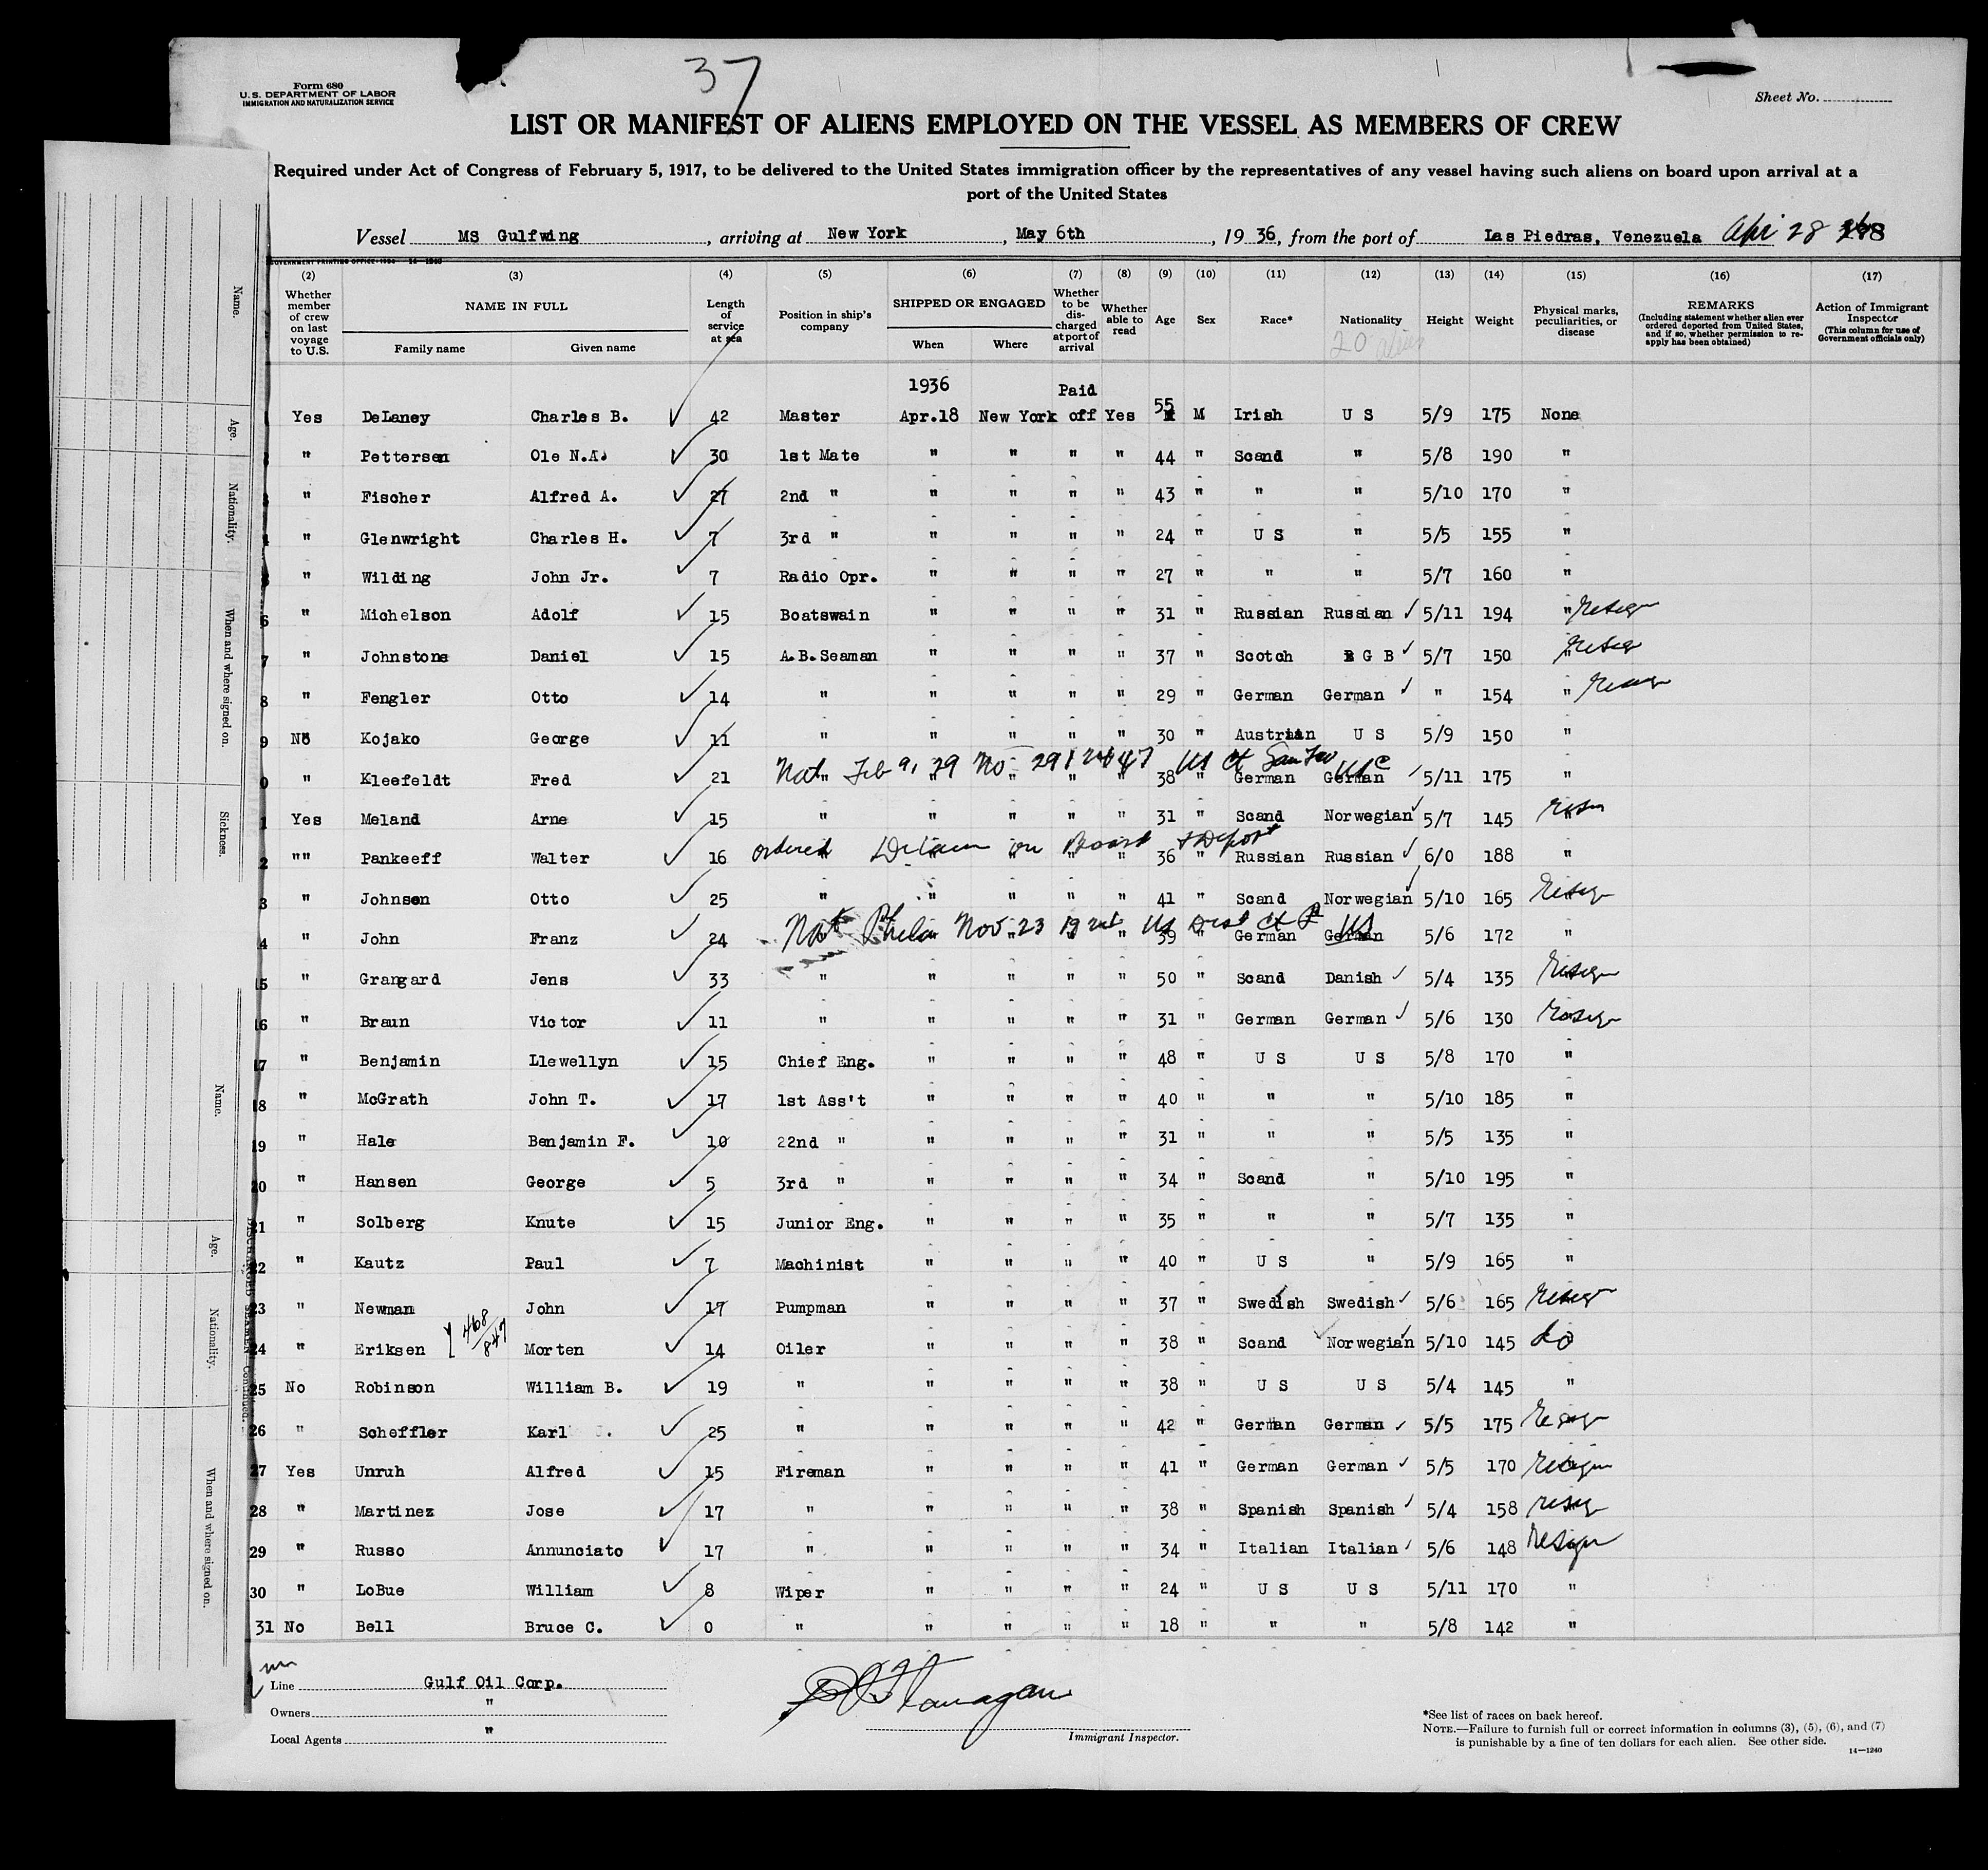 37
Form 680
U. S. DEPARTMENT OF LABOR
IMMIGRATION AND NATURALIZATION SERVICE
Sheet No.
LIST OR MANIFEST OF ALIENS EMPLOYED ON THE VESSEL AS MEMBERS OF CREW
Required under Act of Congress of February 5, 1917, to be delivered to the United States immigration officer by the representatives of any vessel having such aliens on board upon arrival at a
port of the United States
Vessel MS Gulfwing, arriving at New York, May 6th, 1936, from the port of Las Piedras, Venezuela Apr 28
(2) (3) (4) (5) (6) (7) (8) (9) (10) (11) (12) (13) (14) (15) (16) (17)
Whether member of crew on last voyage to U.S. NAME IN FULL Family name Given name Length of service at sea Position in ship's company SHIPPED OR ENGAGED When Where Whether to be discharged at port of arrival Whether able to read Age Sex Race* Nationality Height Weight Physical marks, peculiarities, or disease REMARKS (Including statement whether alien ever ordered deported from United States, and if so, whether permission to re-apply has been obtained) Action of Immigrant Inspector (This column for use of Government officials only)
20 aliens
1936 Paid
Yes DeLaney Charles B. 42 Master Apr.18 New York off Yes 55 M Irish U S 5/9 175 None
" Pettersen Ole N.A. 30 1st Mate " " " " 44 " Scand " 5/8 190 "
" Fischer Alfred A. 27 2nd " " " " " 43 " " " 5/10 170 "
" Glenwright Charles H. 7 3rd " " " " " 24 " U S " 5/5 155 "
" Wilding John Jr. 7 Radio Opr. " " " " 27 " " " 5/7 160 "
6 " Michelson Adolf 15 Boatswain " " " " 31 " Russian Russian 5/11 194 " resign
7 " Johnstone Daniel 15 A.B.Seaman " " " " 37 " Scotch G B 5/7 150 " resign
8 " Fengler Otto 14 " " " " " 29 " German German " 154 " resign
9 No Kojako George 11 " " " " " 30 " Austrian U S 5/9 150 "
Nat Feb 9, 29 No. US Ct San Fco USC
0 " Kleefeldt Fred 21 " " " " " 38 " German German 5/11 175 "
1 Yes Meland Arne 15 " " " " " 31 " Scand Norwegian 5/7 145 " resign
ordered Detain on Board & Deport
2 "" Pankeeff Walter 16 " " " " " 36 " Russian Russian 6/0 188 "
3 " Johnson Otto 25 " " " " " 41 " Scand Norwegian 5/10 165 resign
Nat Phila Nov 23 US Dist Ct US
4 " John Franz 24 " " " 39 " German German 5/6 172 "
15 " Grangard Jens 33 " " " " " 50 " Scand Danish 5/4 135 resign
16 " Braun Victor 11 " " " " " 31 " German German 5/6 130 resign
17 " Benjamin Llewellyn 15 Chief Eng. " " " " 48 " U S U S 5/8 170 "
18 " McGrath John T. 17 1st Ass't " " " " 40 " " " 5/10 185 "
19 " Hale Benjamin F. 10 22nd " " " " " 31 " " " 5/5 135 "
20 " Hansen George 5 3rd " " " " " 34 " Scand " 5/10 195 "
21 " Solberg Knute 15 Junior Eng. " " " " 35 " " " 5/7 135 "
22 " Kautz Paul 7 Machinist " " " " 40 " U S " 5/9 165 "
23 " Newman John 17 Pumpman " " " " 37 " Swedish Swedish 5/6 165 resign
24 " Eriksen 468/847 Morten 14 Oiler " " " " 38 " Scand Norwegian 5/10 145 do
25 No Robinson William B. 19 " " " " " 38 " U S U S 5/4 145 "
26 " Scheffler Karl 25 " " " " " 42 " German German 5/5 175 resign
27 Yes Unruh Alfred 15 Fireman " " " " 41 " German German 5/5 170 resign
28 " Martinez Jose 17 " " " " " 38 " Spanish Spanish 5/4 158 resign
29 " Russo Annunciato 17 " " " " " 34 " Italian Italian 5/6 148 resign
30 " LoBue William 8 Wiper " " " " 24 " U S U S 5/11 170 "
31 No Bell Bruce C. 0 " " " " " 18 " " " 5/8 142 "
Line Gulf Oil Corp.
Owners "
Local Agents "
Flanagan
Immigrant Inspector.
*See list of races on back hereof.
NOTE.—Failure to furnish full or correct information in columns (3), (5), (6), and (7)
is punishable by a fine of ten dollars for each alien. See other side.
14—1240
Name.
Age.
Nationality.
When and where signed on.
Sickness.
Name.
Age.
Nationality.
When and where signed on.
DISCHARGED SEAMEN—Continued.